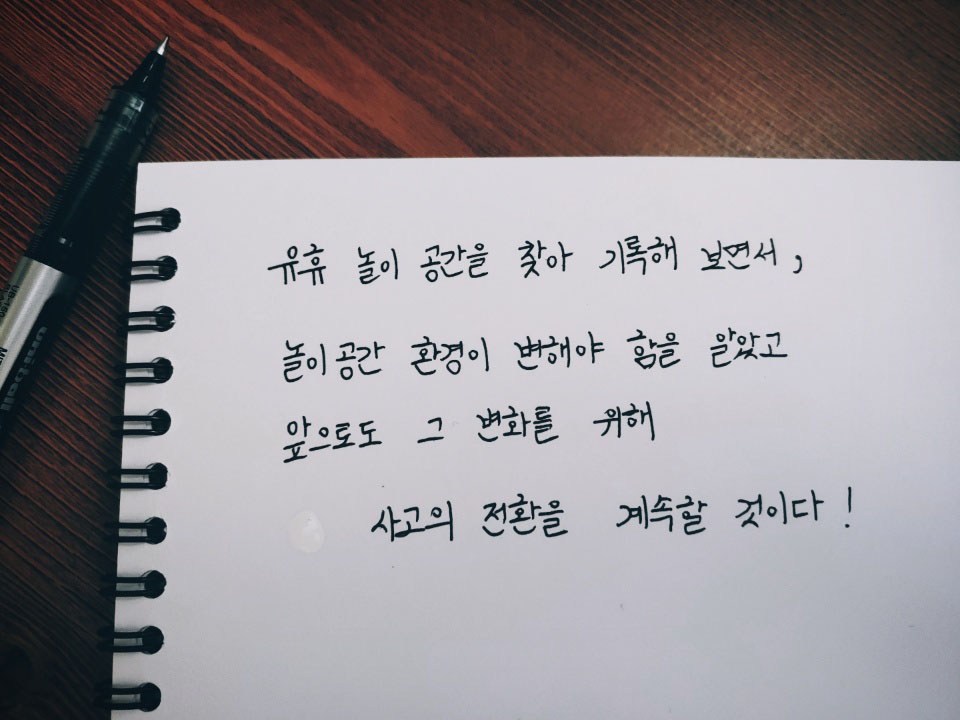 유휴 놀이 공간을 찾아 기록해 보면서,
놀이공간 환경이 변해야 함을 알았고
앞으로도 그 변화를 위해
사고의 전환을 계속할 것이다!
uniball